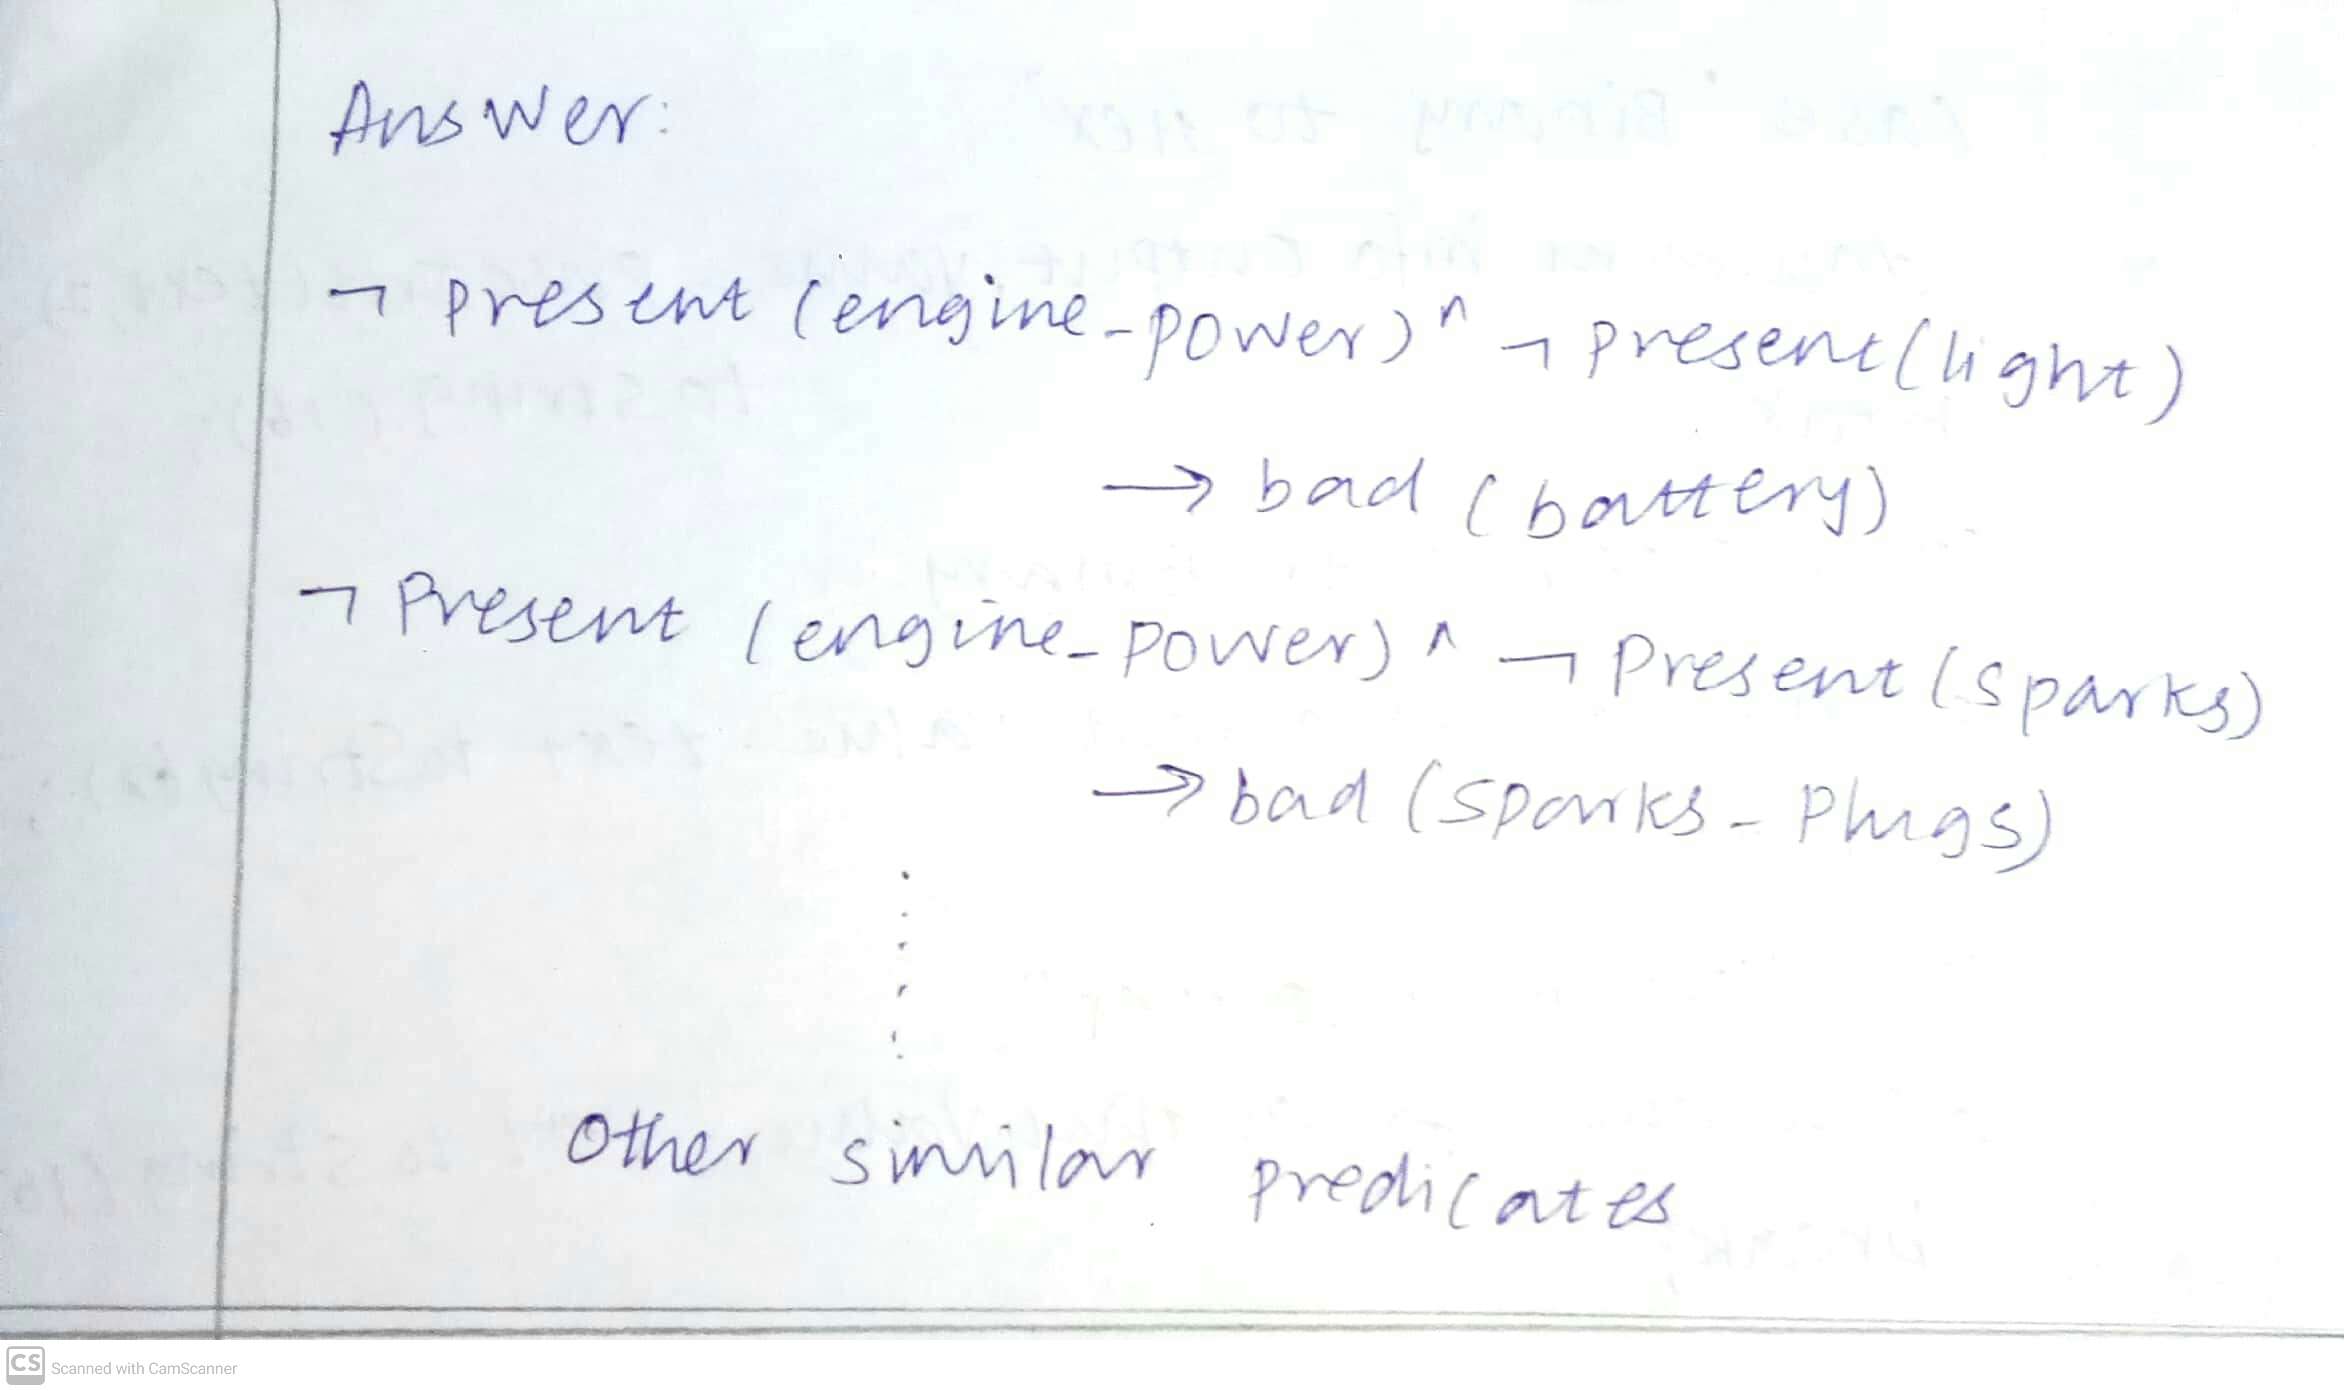 Answer:
¬ Present (engine_power) ^ ¬ Present(light)
→ bad (battery)
¬ Present (engine_power) ^ ¬ Present (sparks)
→ bad (sparks_Plugs)
Other similar predicates
CS Scanned with CamScanner